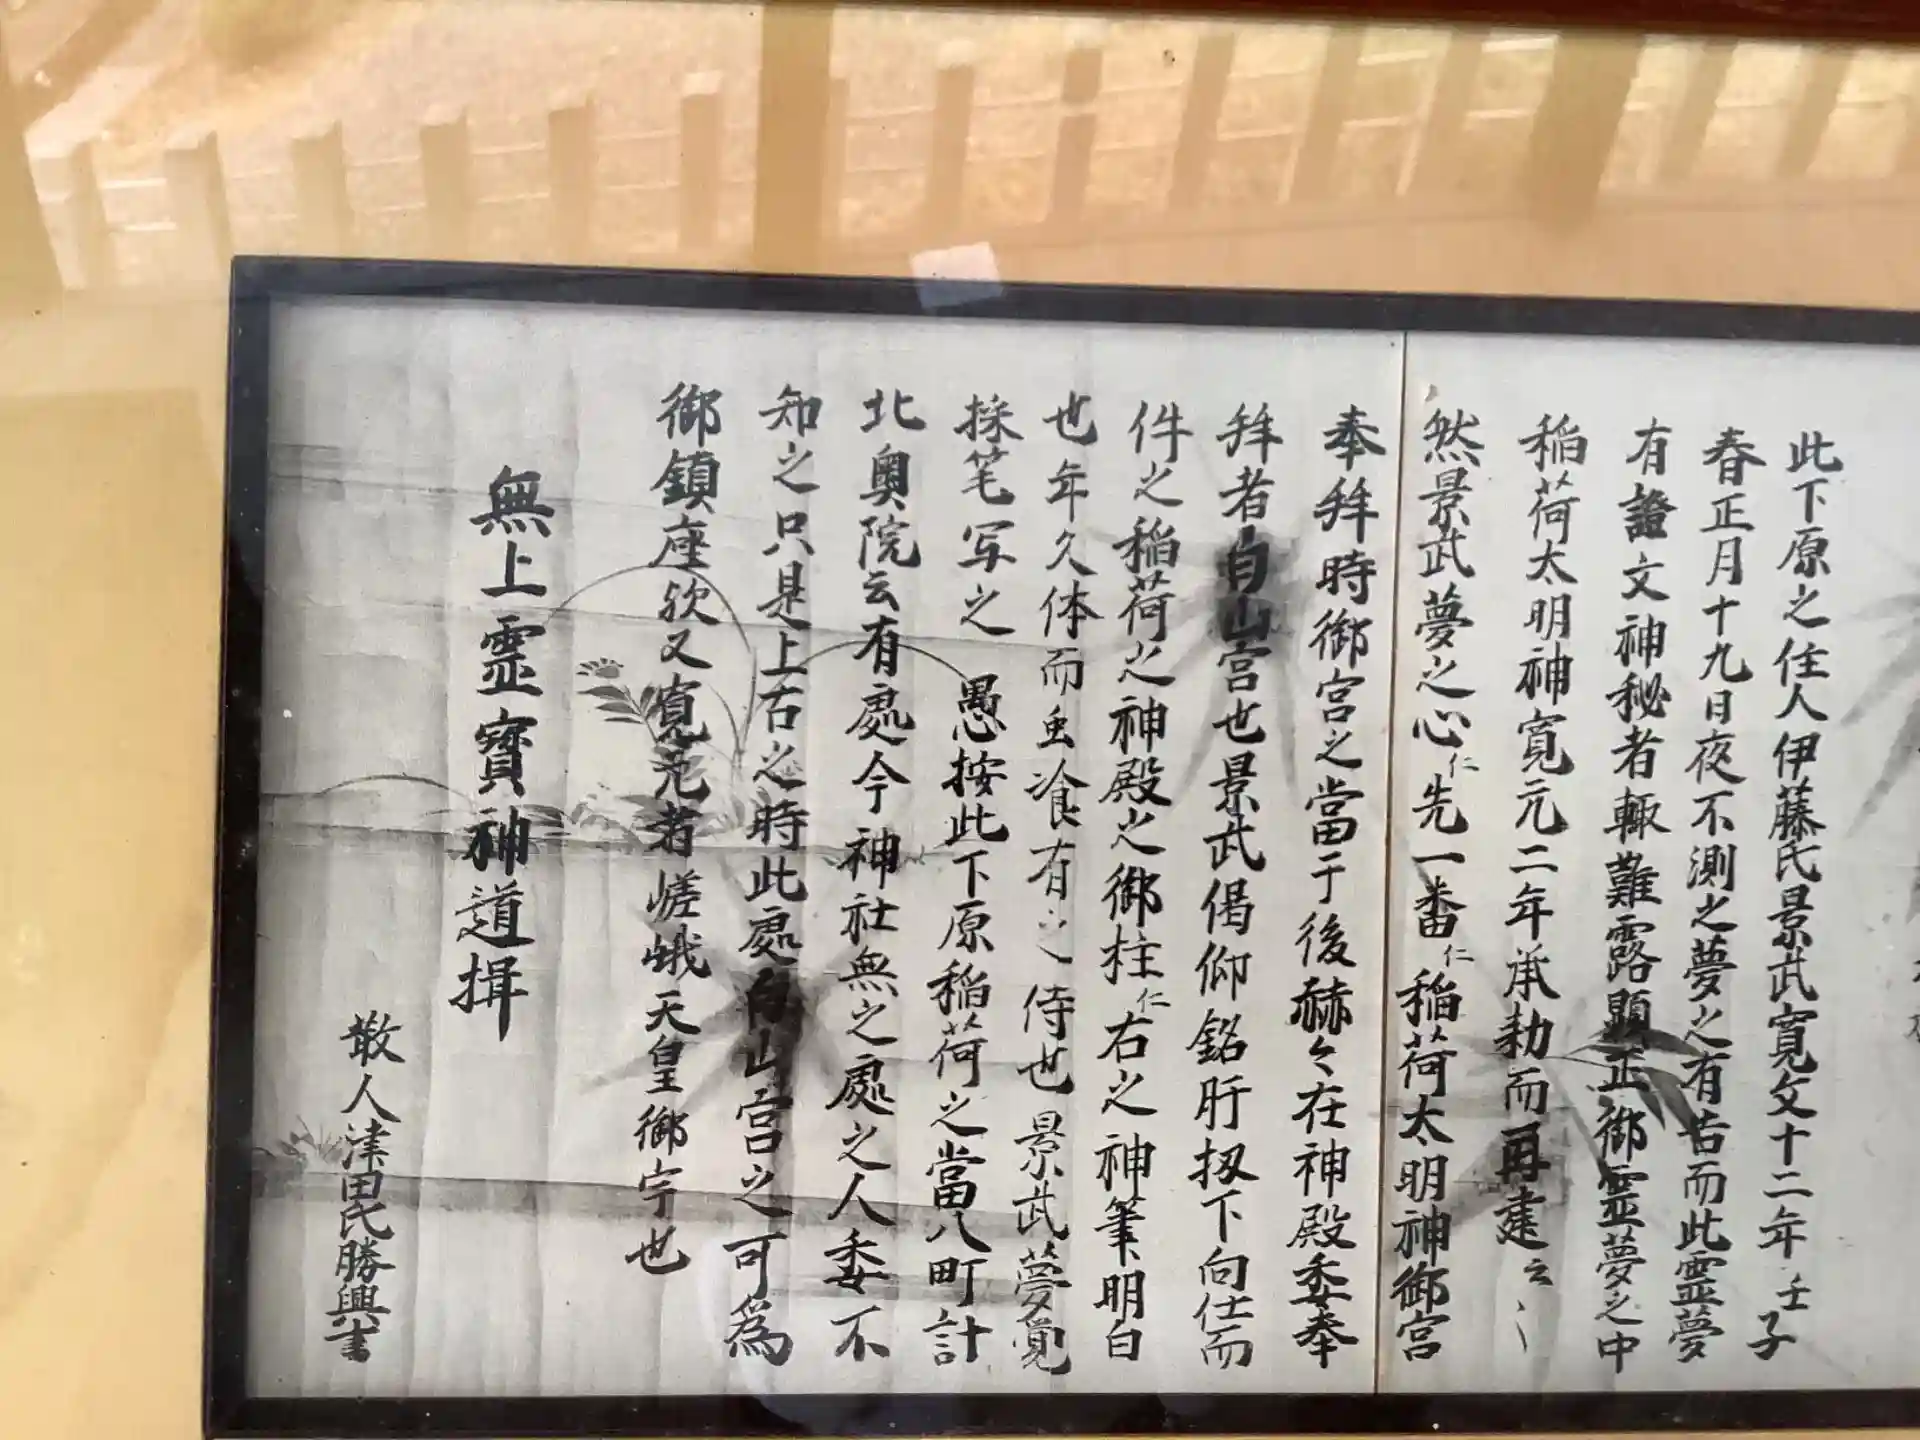 此下原之住人伊藤氏景武寛文十二年壬子
春正月十九日夜不測之夢之有告而此霊夢
有證文神秘者輙難露顕正御霊夢之中
稲荷太明神寛元二年承勅而再建云〻
然景武夢之心仁先一番仁稲荷太明神御宮
奉拜時御宮之當于後赫々在神殿委奉
拜者白山宮也景武偈仰銘肝扨下向仕而
件之稲荷之神殿之御柱仁右之神筆明白
也年久体而虫飡有之侍也景武夢覚
採笔写之 愚按此下原稲荷之當八町計
北奥院云有處今神社無之處之人委不
知之只是上右之時此處白山宮之可為
御鎮座欤又寛元者嵯峨天皇御宇也
無上霊寳神道揖
散人津田氏勝興書